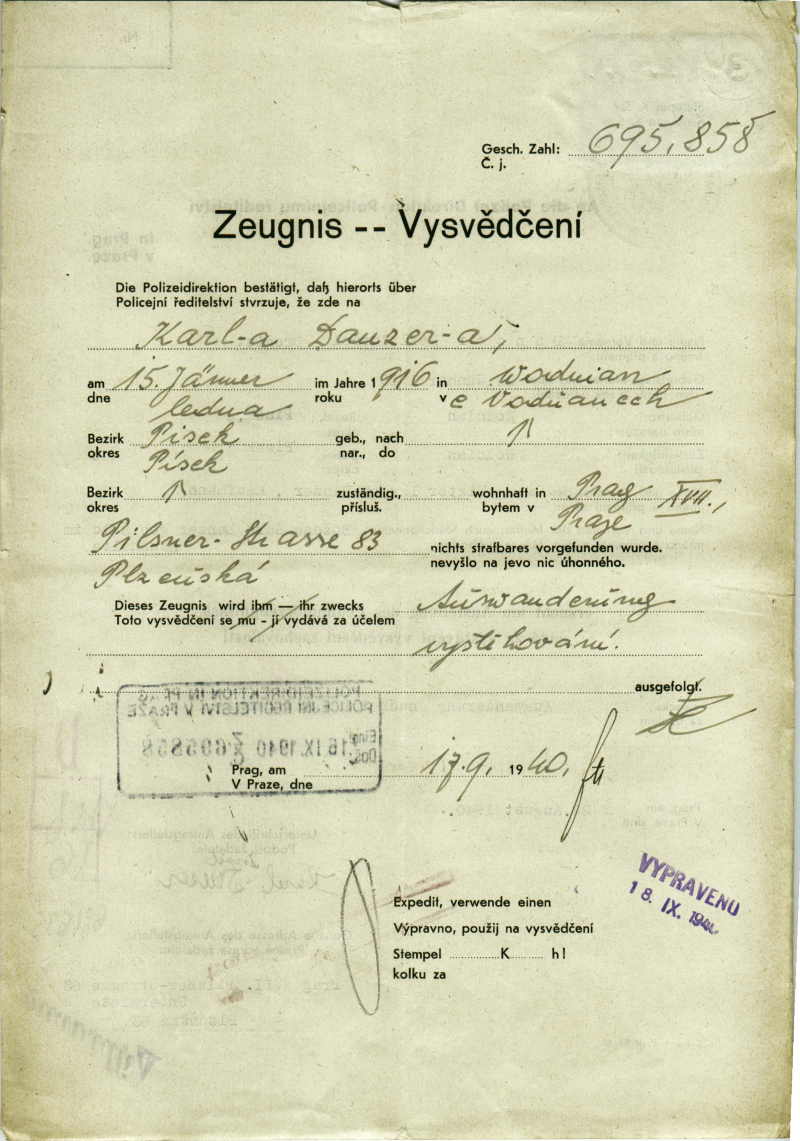 Gesch. Zahl: 695.858
Č. j.
Zeugnis -- Vysvědčení
Die Polizeidirektion bestätigt, daß hierorts über
Policejní ředitelství stvrzuje, že zde na
Karl-a Danzer-a,
am 15. Jänner im Jahre 1916 in Wodnian
dne ledna roku v e Vodňanech
Bezirk Pisek geb., nach
okres Písek nar., do
Bezirk zuständig., wohnhaft in Prag XVII.,
okres přísluš. bytem v Praze
Pilsner-Strasse 83 nichts strafbares vorgefunden wurde.
Plzeňská nevyšlo na jevo nic úhonného.
Dieses Zeugnis wird ihm — ihr zwecks Auswanderung
Toto vysvědčení se mu - jí vydává za účelem
vystěhování.
ausgefolgt.
POLIZEIDIREKTION IN PRAG
POLICEJNÍ ŘEDITELSTVÍ V PRAZE
Eing.
Došlo 16. IX. 1940 695858
Prag, am 17.9. 1940.
V Praze, dne
VYPRAVENO
18. IX. 1940
Expedit, verwende einen
Výpravno, použij na vysvědčení
Stempel K h!
kolku za